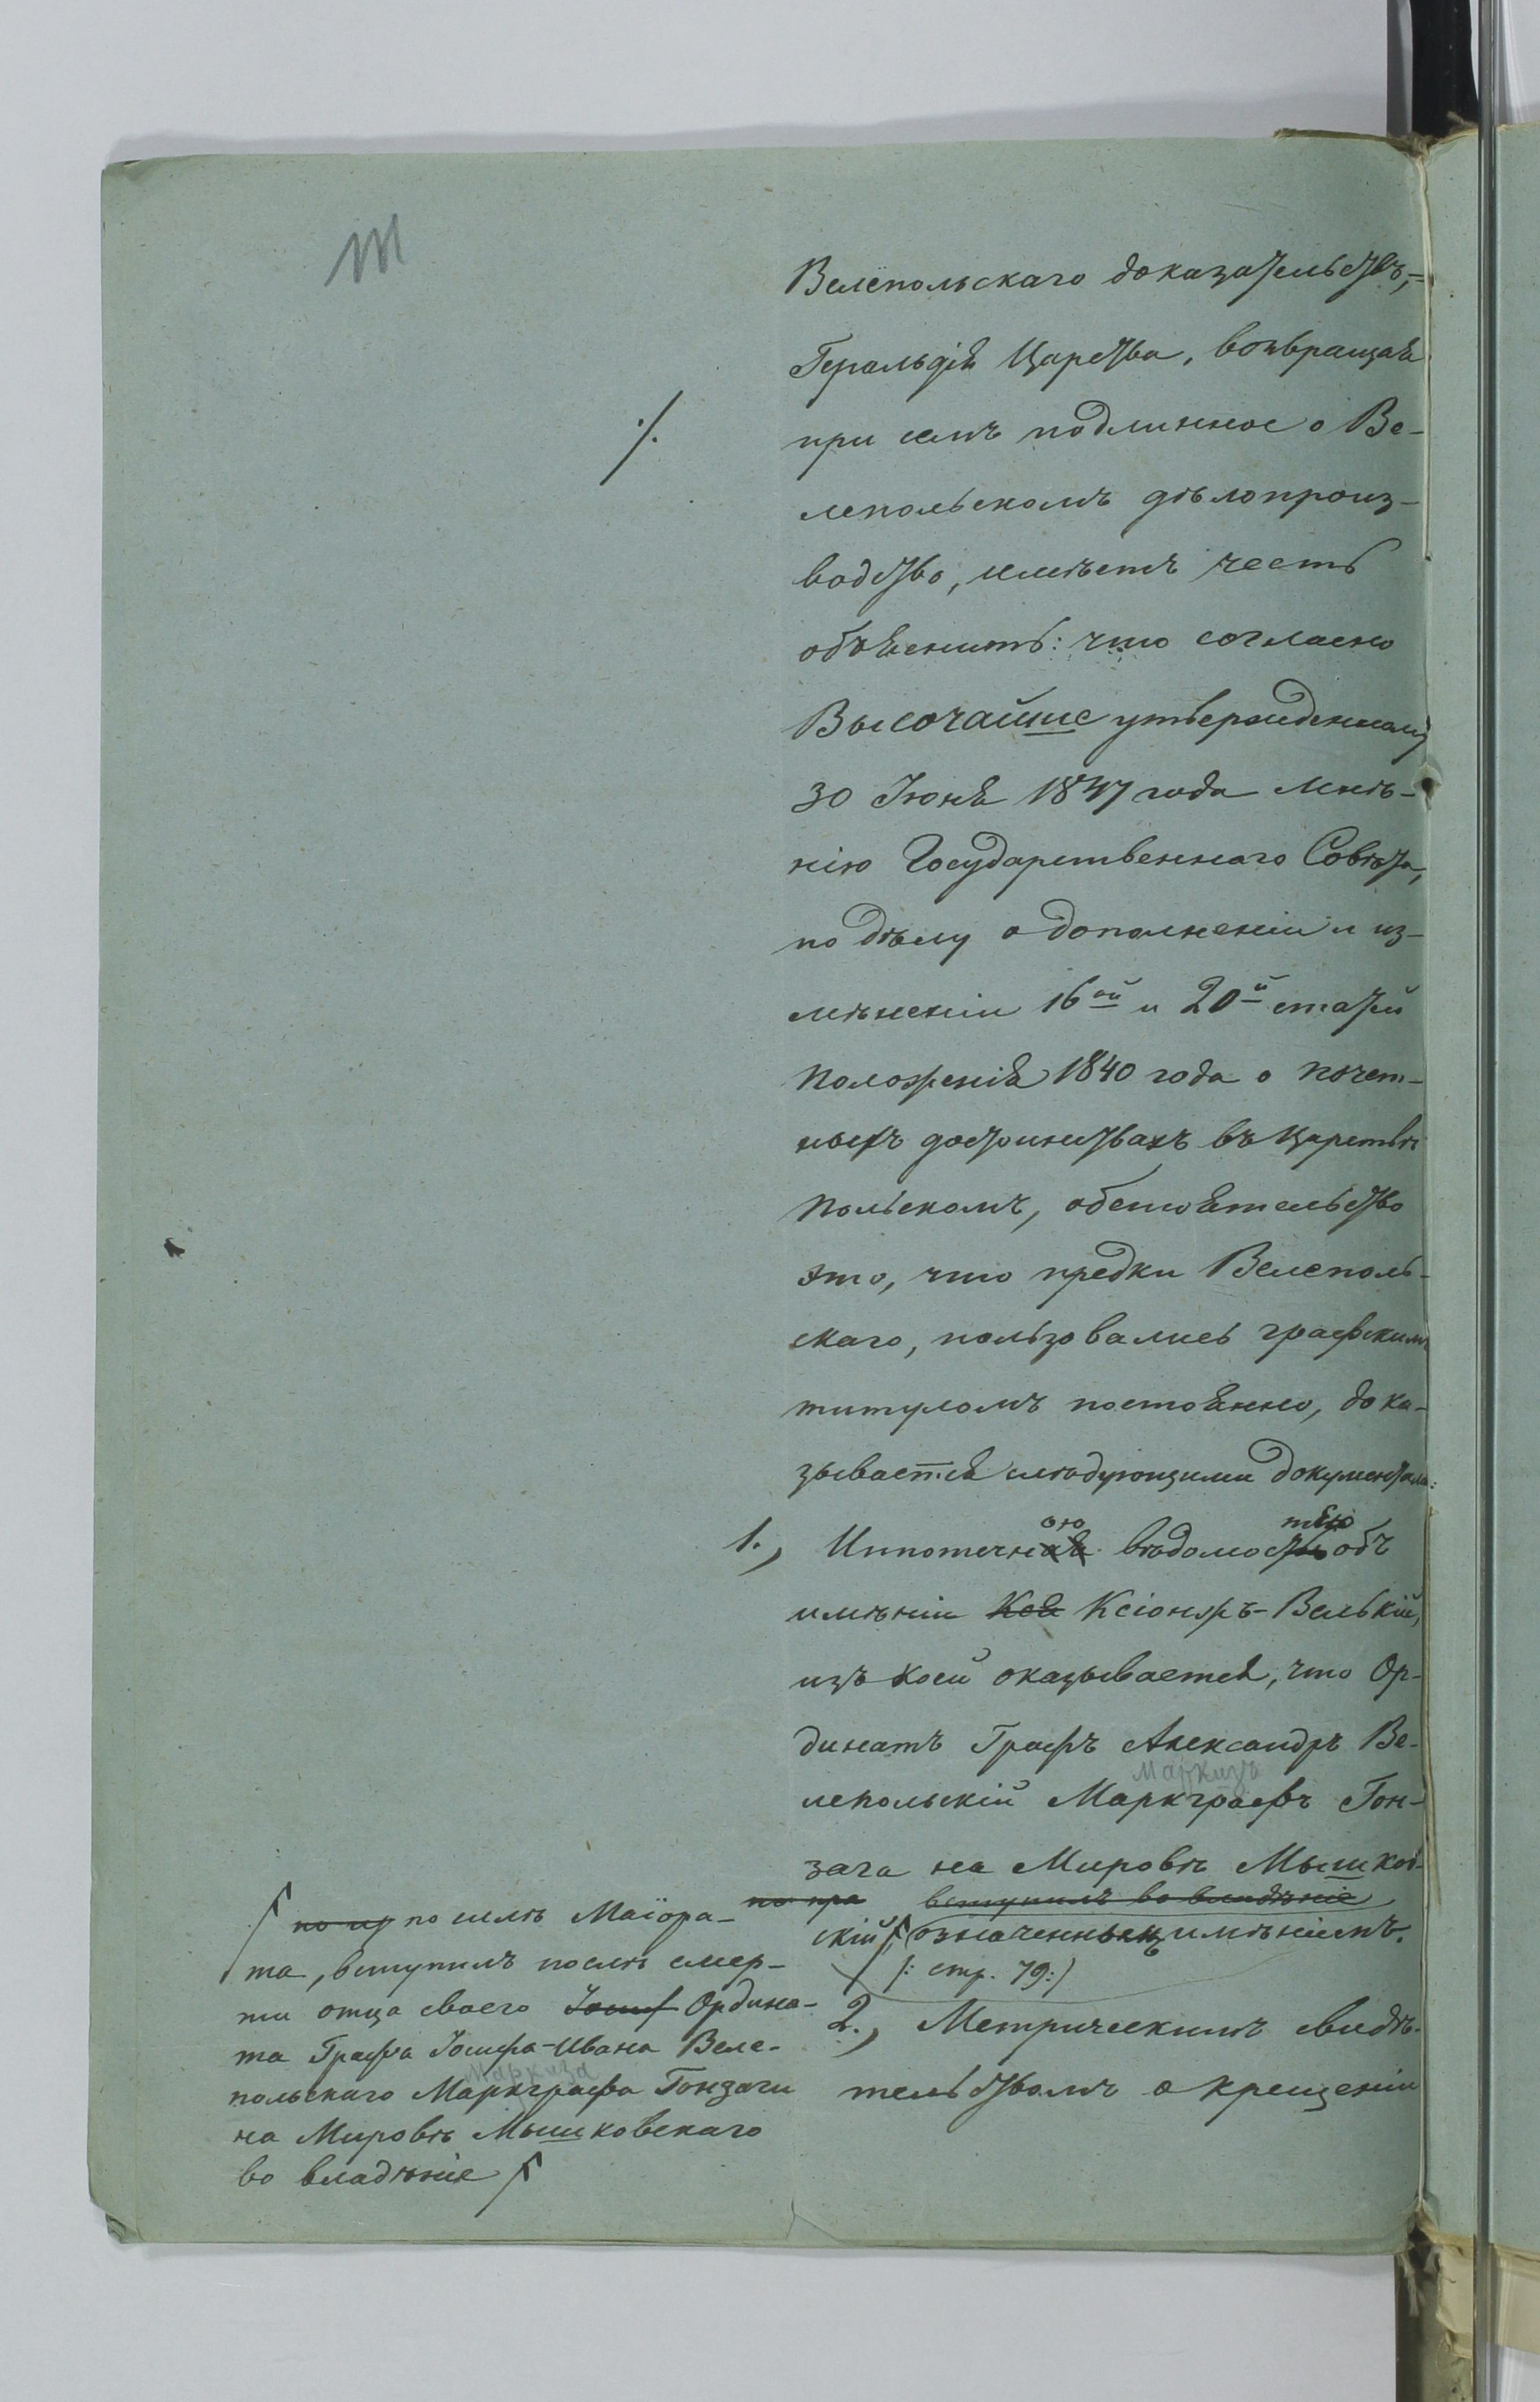 Велепольскаго доказательствъ,=
Герольдія Царства, возвращая
при семъ подлинное о Ве-
лепольскомъ дѣлопроиз-
водство, имѣетъ честь
объяснить: что согласно
Высочайше утвержденному
30 Іюня 1847 года мнѣ-
нію Государственнаго Совѣта,
по дѣлу о дополненіи и из-
мѣненіи 16ой и 20й статей
Положенія 1840 года о почет-
ныхъ достоинствахъ въ Царствѣ
Польскомъ, обстоятельство
это, что предки Велеполь-
скаго, пользовались графскимъ
титуломъ постоянно, дока-
зывается слѣдующими документами:
ою тью
1., Ипотечная вѣдомость объ
имѣніи Кся Ксіонжъ-Велькій,
изъ коей оказывается, что Ор-
динатъ Графъ Александръ Ве-
Маркизъ
лепольскій Маркграфъ Гон-
зага на Мировѣ Мышков-
по пра вступилъ во владѣніе
скій, означеннымъ имѣніемъ.
/: стр. 79:/
2., Метрическимъ свидѣ-
тельствомъ о крещеніи
./.
по силѣ Маіора-
та, вступилъ послѣ смер-
ти отца своего Іосиф Ордина-
та Графа Іосифа-Ивана Веле-
Маркиза
польскаго Маркграфа Гонзаги
на Мировѣ Мышковскаго
во владѣніе